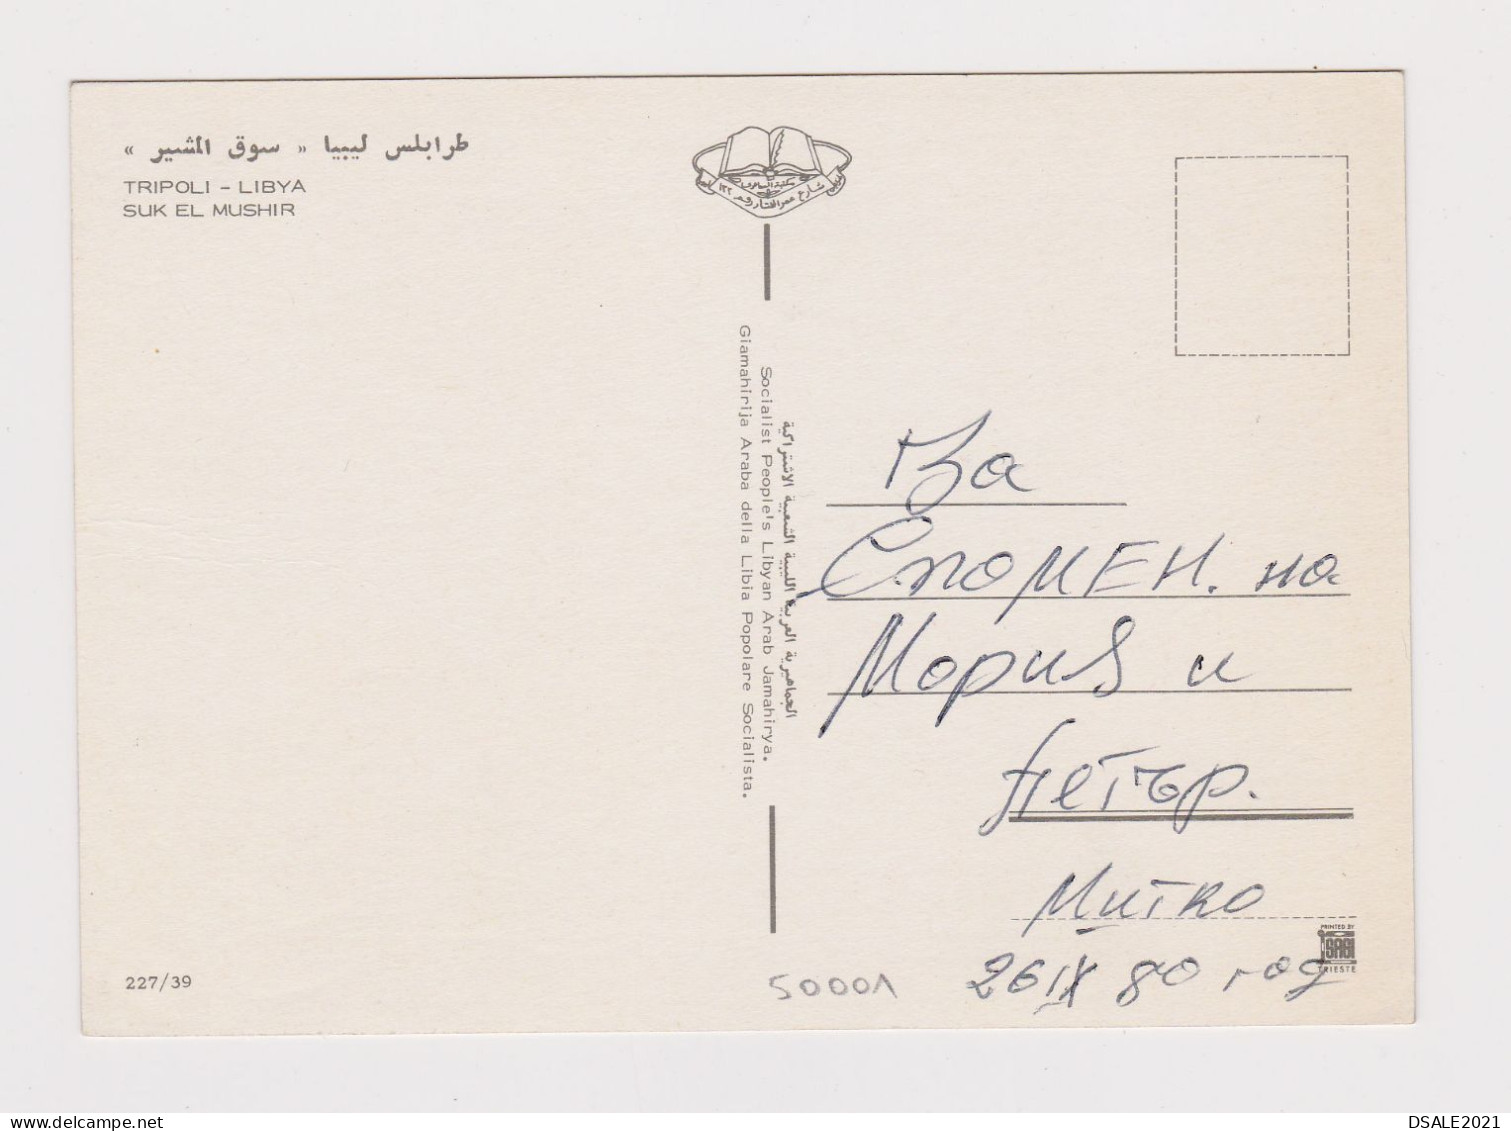 طرابلس ليبيا « سوق المشير »
TRIPOLI – LIBYA
SUK EL MUSHIR
الجماهيرية العربية الليبية الشعبية الاشتراكية
Socialist People's Libyan Arab Jamahirya.
Giamahirija Araba della Libia Popolare Socialista.
За
Спомен. на
Мария и
Петър.
Митко
26 IX 80 год
PRINTED BY
SABI
TRIESTE
227/39
5000Λ
DSALE2021